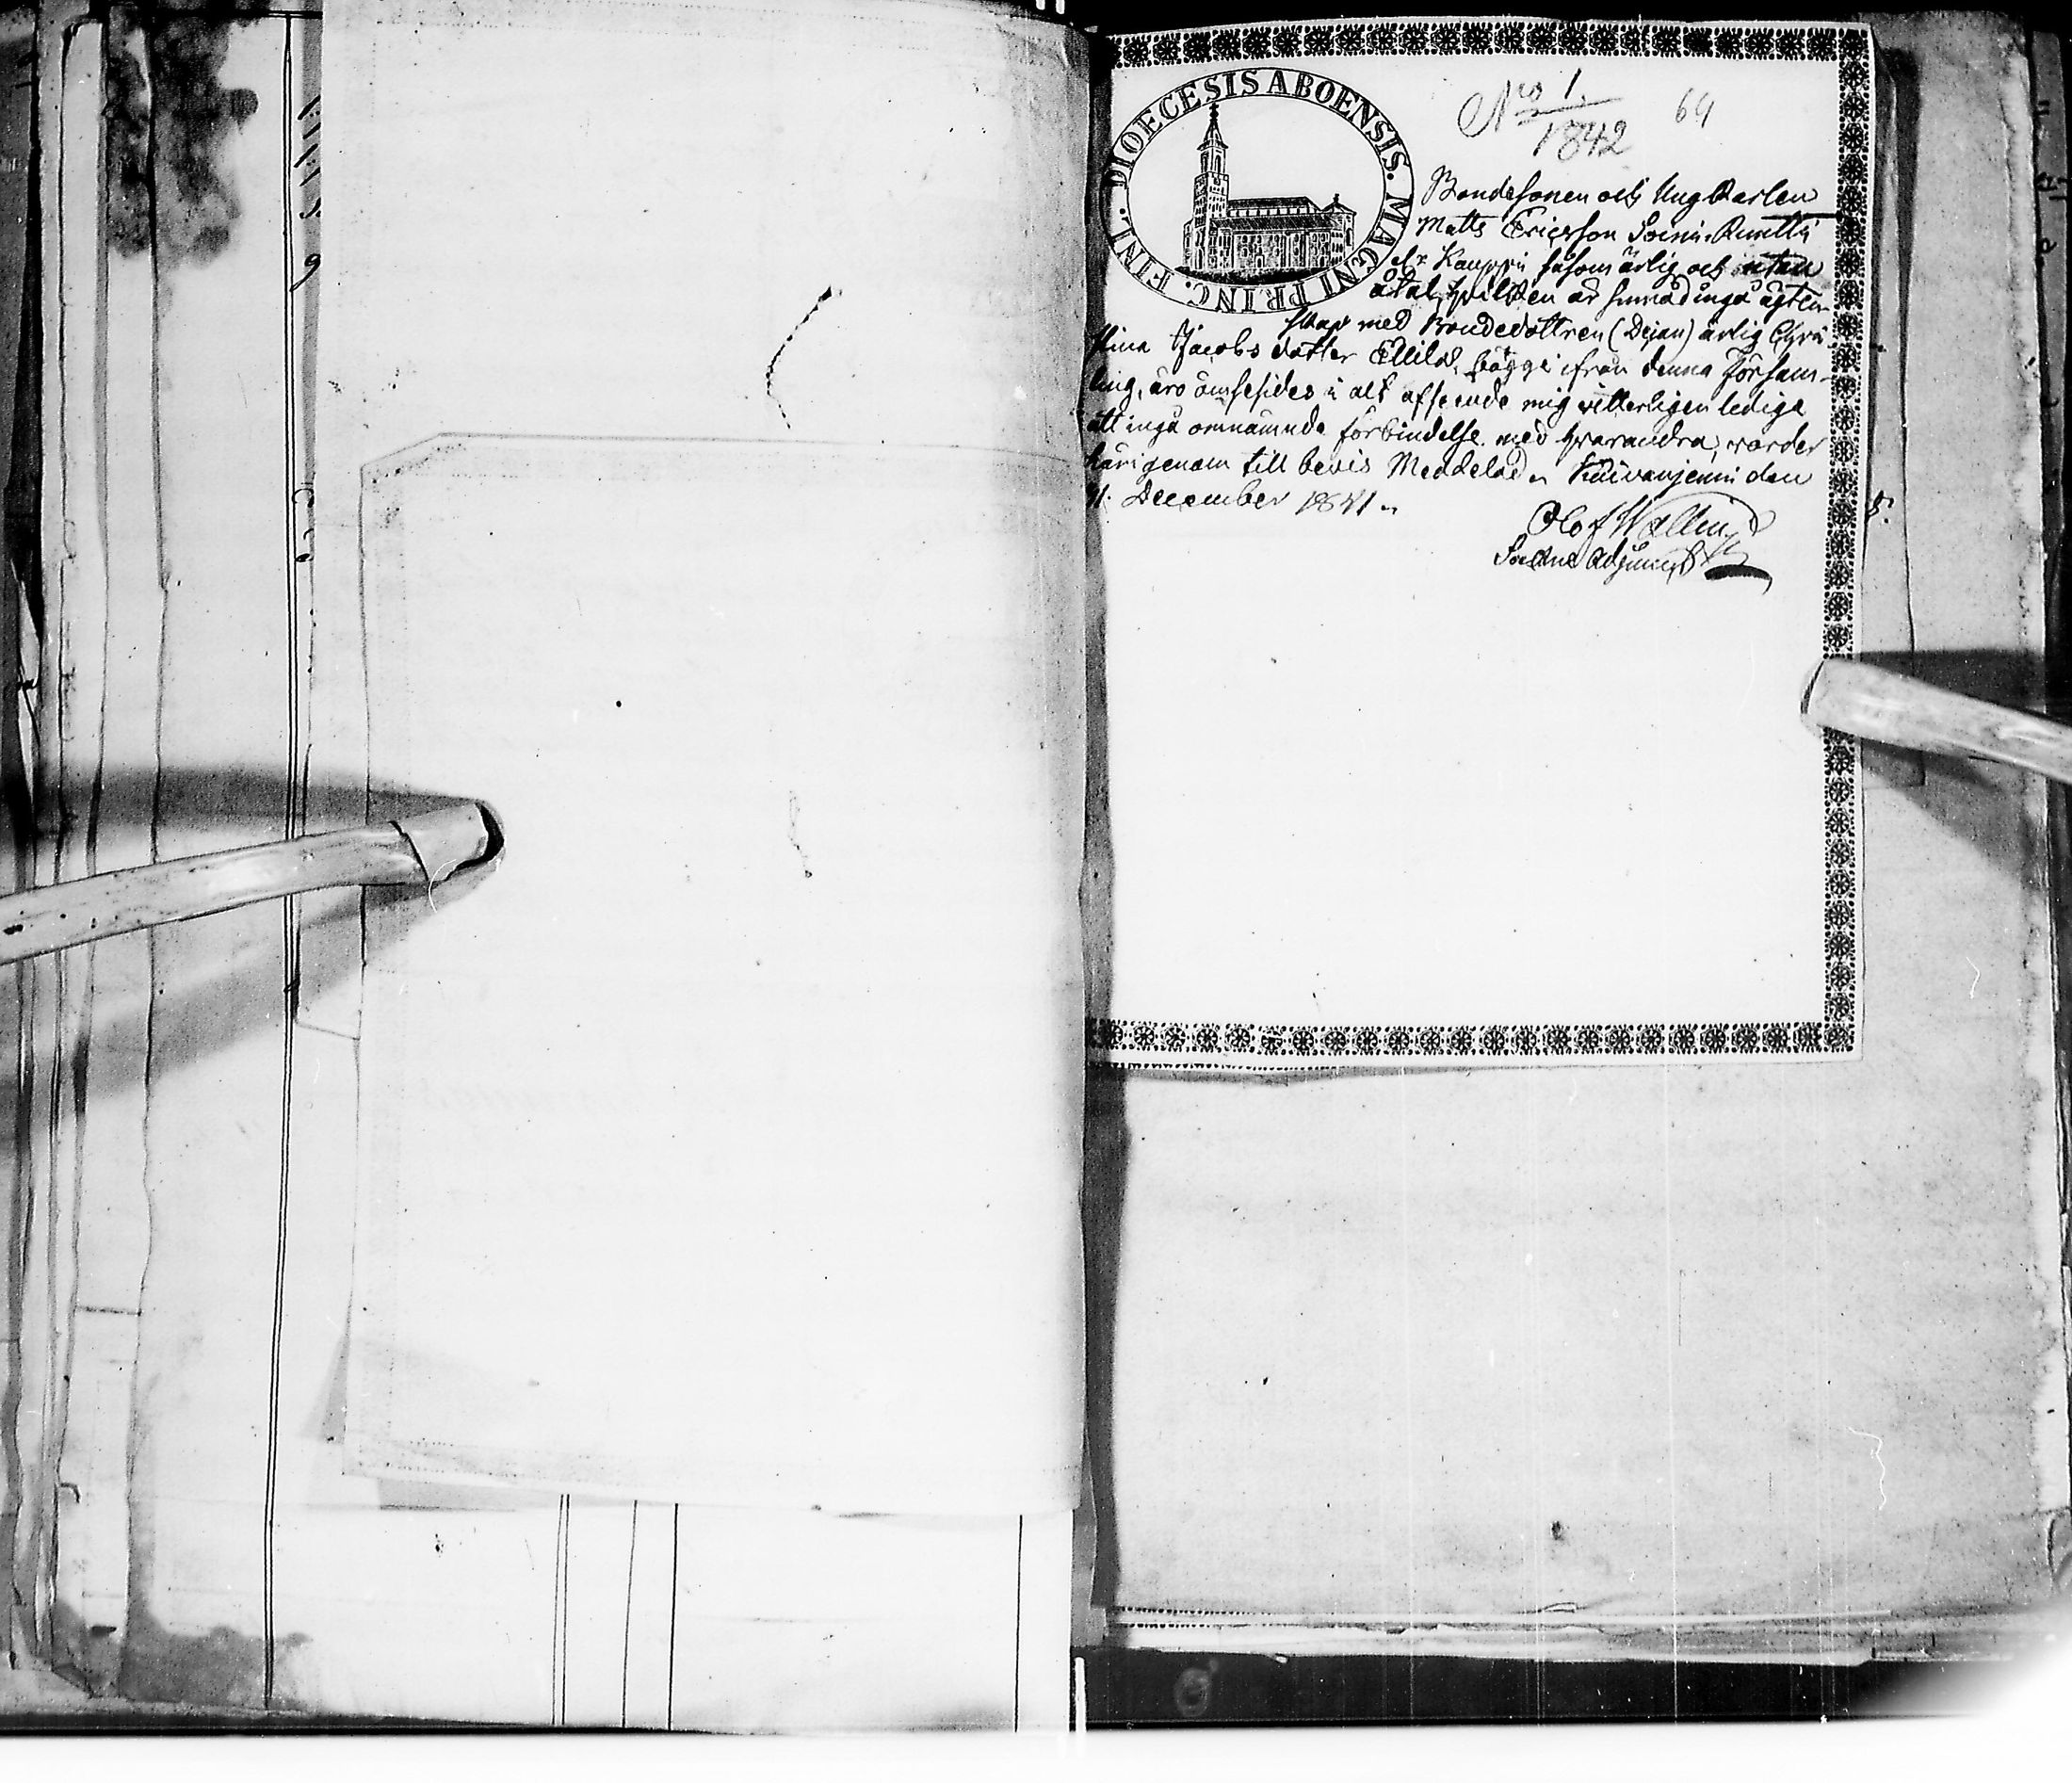 DIOECESIS ABOENSIS. MAGNI PRINC. FINL.
No 1.
1842
64
Bondesonen och Ung Karlen
Matts Ericsson Soini
Kauppi såsom ärlig och utan
åtal, hvilken är sinnad ingå äkten-
skap med Bondedottren (Pigan) ärlig Chri-
stina Jacobsdotter bägge ifrån denna Försam-
ling, äro ömsesides i alt afseende mig vitterligen lediga
att ingå omnämnde förbindelse med hvarandra, warder
härigenom till bevis Meddelad. den
December 1841.
Olof Wallin
Sockne Adjunct